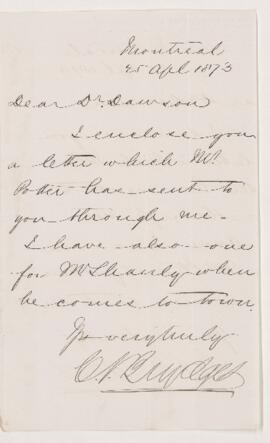 Montreal
25 Apl 1873
Dear Dr. Dawson
I enclose you
a letter which Mr.
Potter has sent to
you through me.
I have also one
for Mr Shanly when
he comes to town.
Yrs very truly
C. J. Brydges